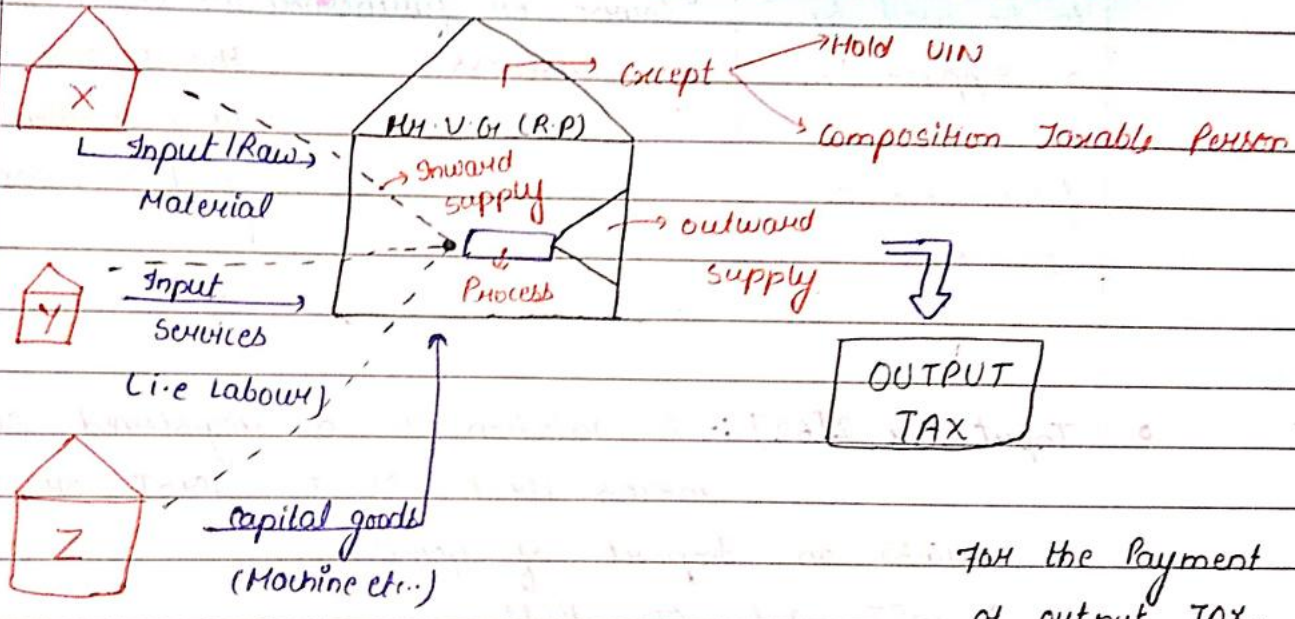 X
Input/Raw
Material
Y
Input
Services
(i.e Labour)
Z
Capital goods
(Machine etc..)
(R.P)
Inward
supply
Process
Except
Hold UIN
Composition Taxable Person
outward
supply
OUTPUT
TAX
For the Payment
of output TAX